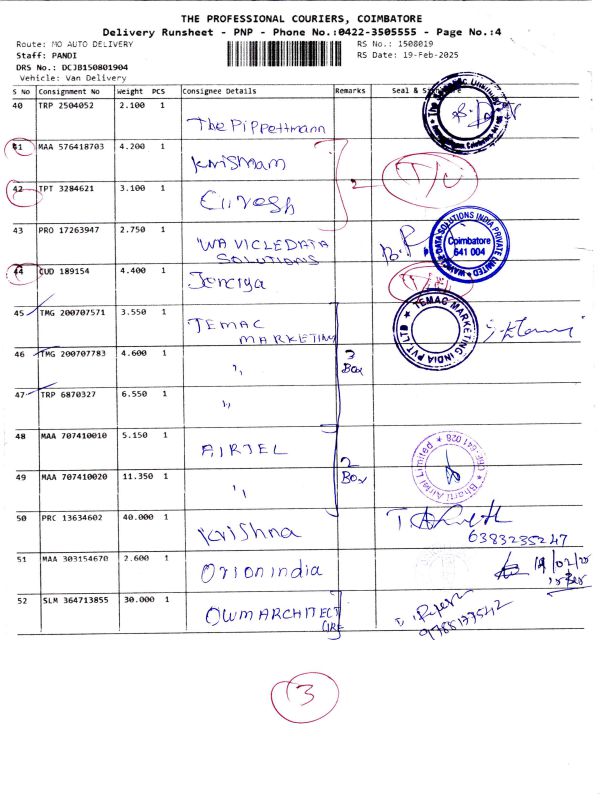 THE PROFESSIONAL COURIERS, COIMBATORE
Delivery Runsheet - PNP - Phone No.:0422-3505555 - Page No.:4
Route: MO AUTO DELIVERY RS No.: 1508019
Staff: PANDI RS Date: 19-Feb-2025
DRS No.: DCJB150801904
Vehicle: Van Delivery
S No Consignment No Weight PCS Consignee Details Remarks Seal &
40 TRP 2504052 2.100 1 The Pippettmann
41 MAA 576418703 4.200 1 Krishnam
42 TPT 3284621 3.100 1 2
43 PRO 17263947 2.750 1 WAVICLEDATA SOLUTIONS
WAVICLE DATA SOLUTIONS INDIA PRIVATE LIMITED
Coimbatore
641 004
44 CUD 189154 4.400 1 Jenciya
45 TMG 200707571 3.550 1 TEMAC MARKETING
TEMAC MARKETING INDIA PVT LTD
46 TMG 200707783 4.600 1 ,, 3 Box
47 TRP 6870327 6.550 1 ,,
48 MAA 707410010 5.150 1 AIRTEL
Bharti Airtel Limited CBE-641 028
49 MAA 707410020 11.350 1 ,, 2 Box
50 PRC 13634602 40.000 1 Krishna
6383235247
51 MAA 303154670 2.600 1 Orionindia 19/02/25
52 SLM 364713855 30.000 1 OWMARCHITECT
9788177542
3